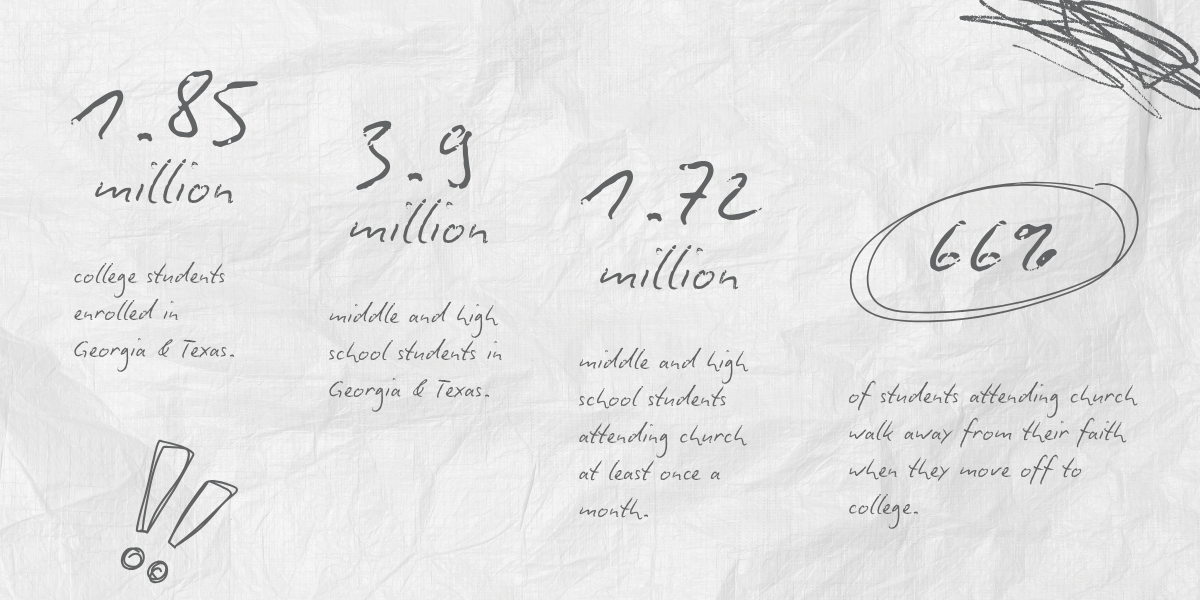 1.85
million
college students
enrolled in
Georgia & Texas.
3.9
million
middle and high
school students in
Georgia & Texas.
1.72
million
middle and high
school students
attending church
at least once a
month.
66%
of students attending church
walk away from their faith
when they move off to
college.